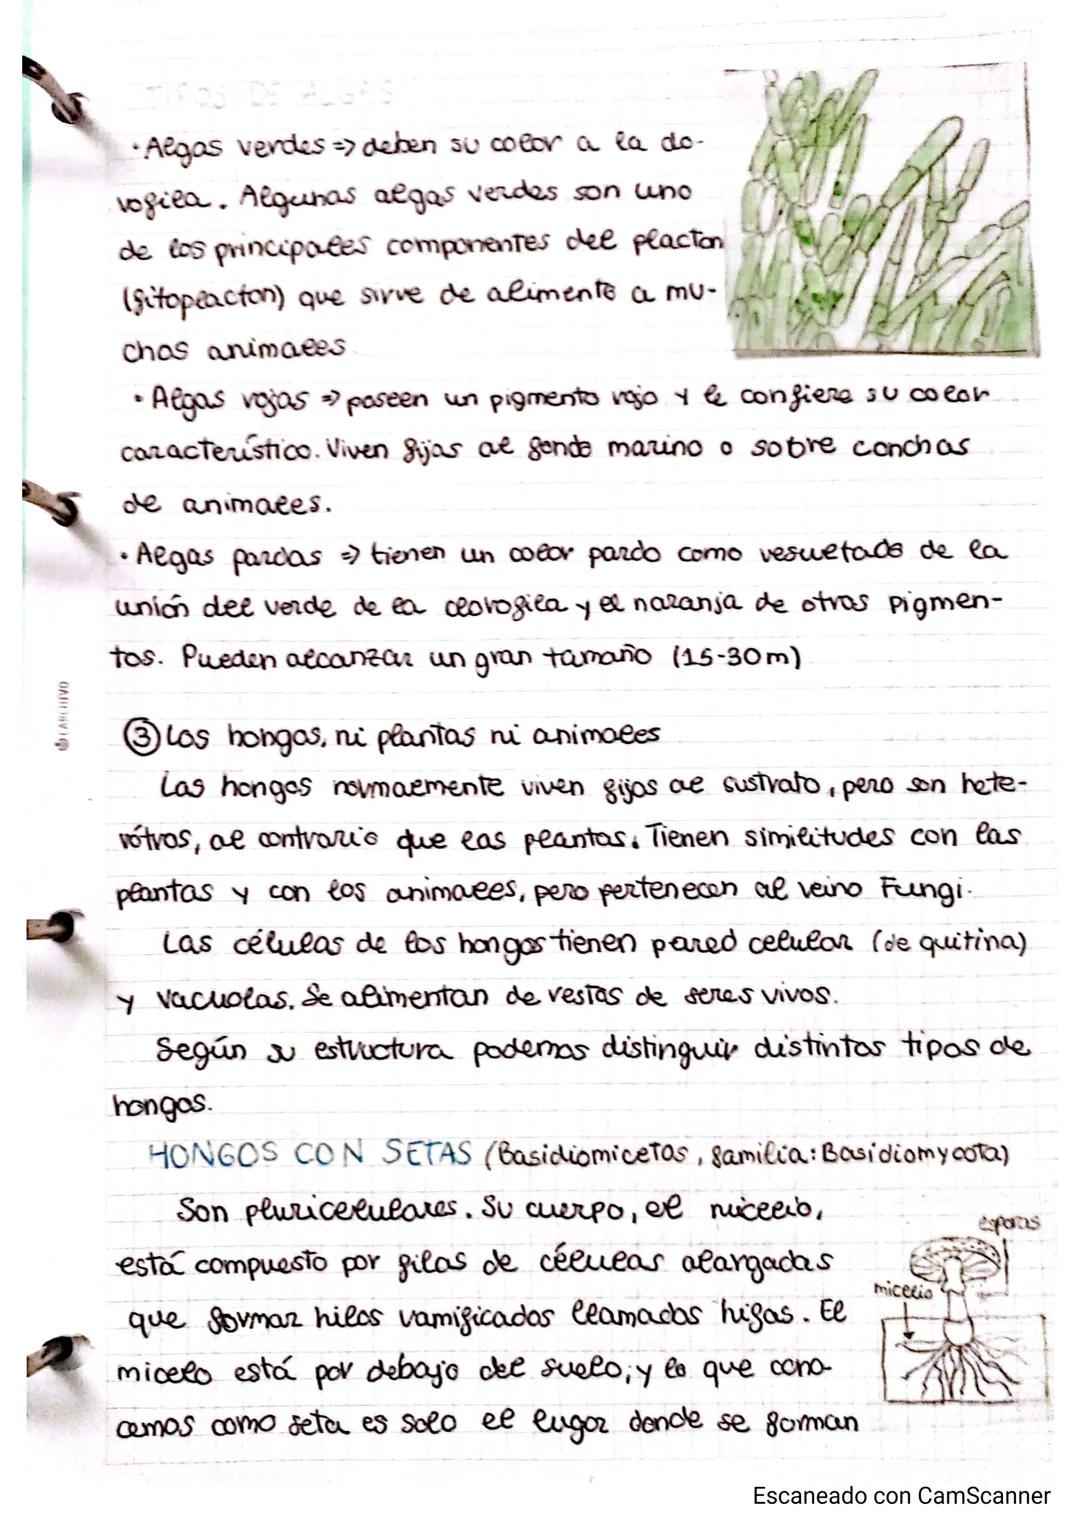 TIPOS DE ALGAS
· Algas verdes => deben su color a la clo-
rofila. Algunas algas verdes son uno
de los principales componentes del placton
(fitoplacton) que sirve de alimento a mu-
chos animales.
· Algas rojas => poseen un pigmento rojo y le confiere su color
característico. Viven fijas al fondo marino o sobre conchas
de animales.
· Algas pardas => tienen un color pardo como resueltado de la
unión del verde de la clorofila y el naranja de otros pigmen-
tos. Pueden alcanzar un gran tamaño (15-30m)
ARCHIVO
③ Los hongos, ni plantas ni animales
Los hongos normalmente viven fijos al sustrato, pero son hete-
rótros, al contrario que las plantas. Tienen similitudes con las
plantas y con los animales, pero pertenecen al reino Fungi.
Las células de los hongos tienen pared celular (de quitina)
y vacuolas. Se alimentan de restos de seres vivos.
Según su estructura podemos distinguir distintos tipos de
hongos.
HONGOS CON SETAS (Basidiomicetos, familia: Basidiomycota)
Son pluricelulares. Su cuerpo, el micelio,
está compuesto por filas de células alargadas
que forman hilos ramificados llamados hifas. El
micelo está por debajo del suelo, y lo que cono-
cemos como seta es solo el lugar donde se forman
esporas
micelio
Escaneado con CamScanner